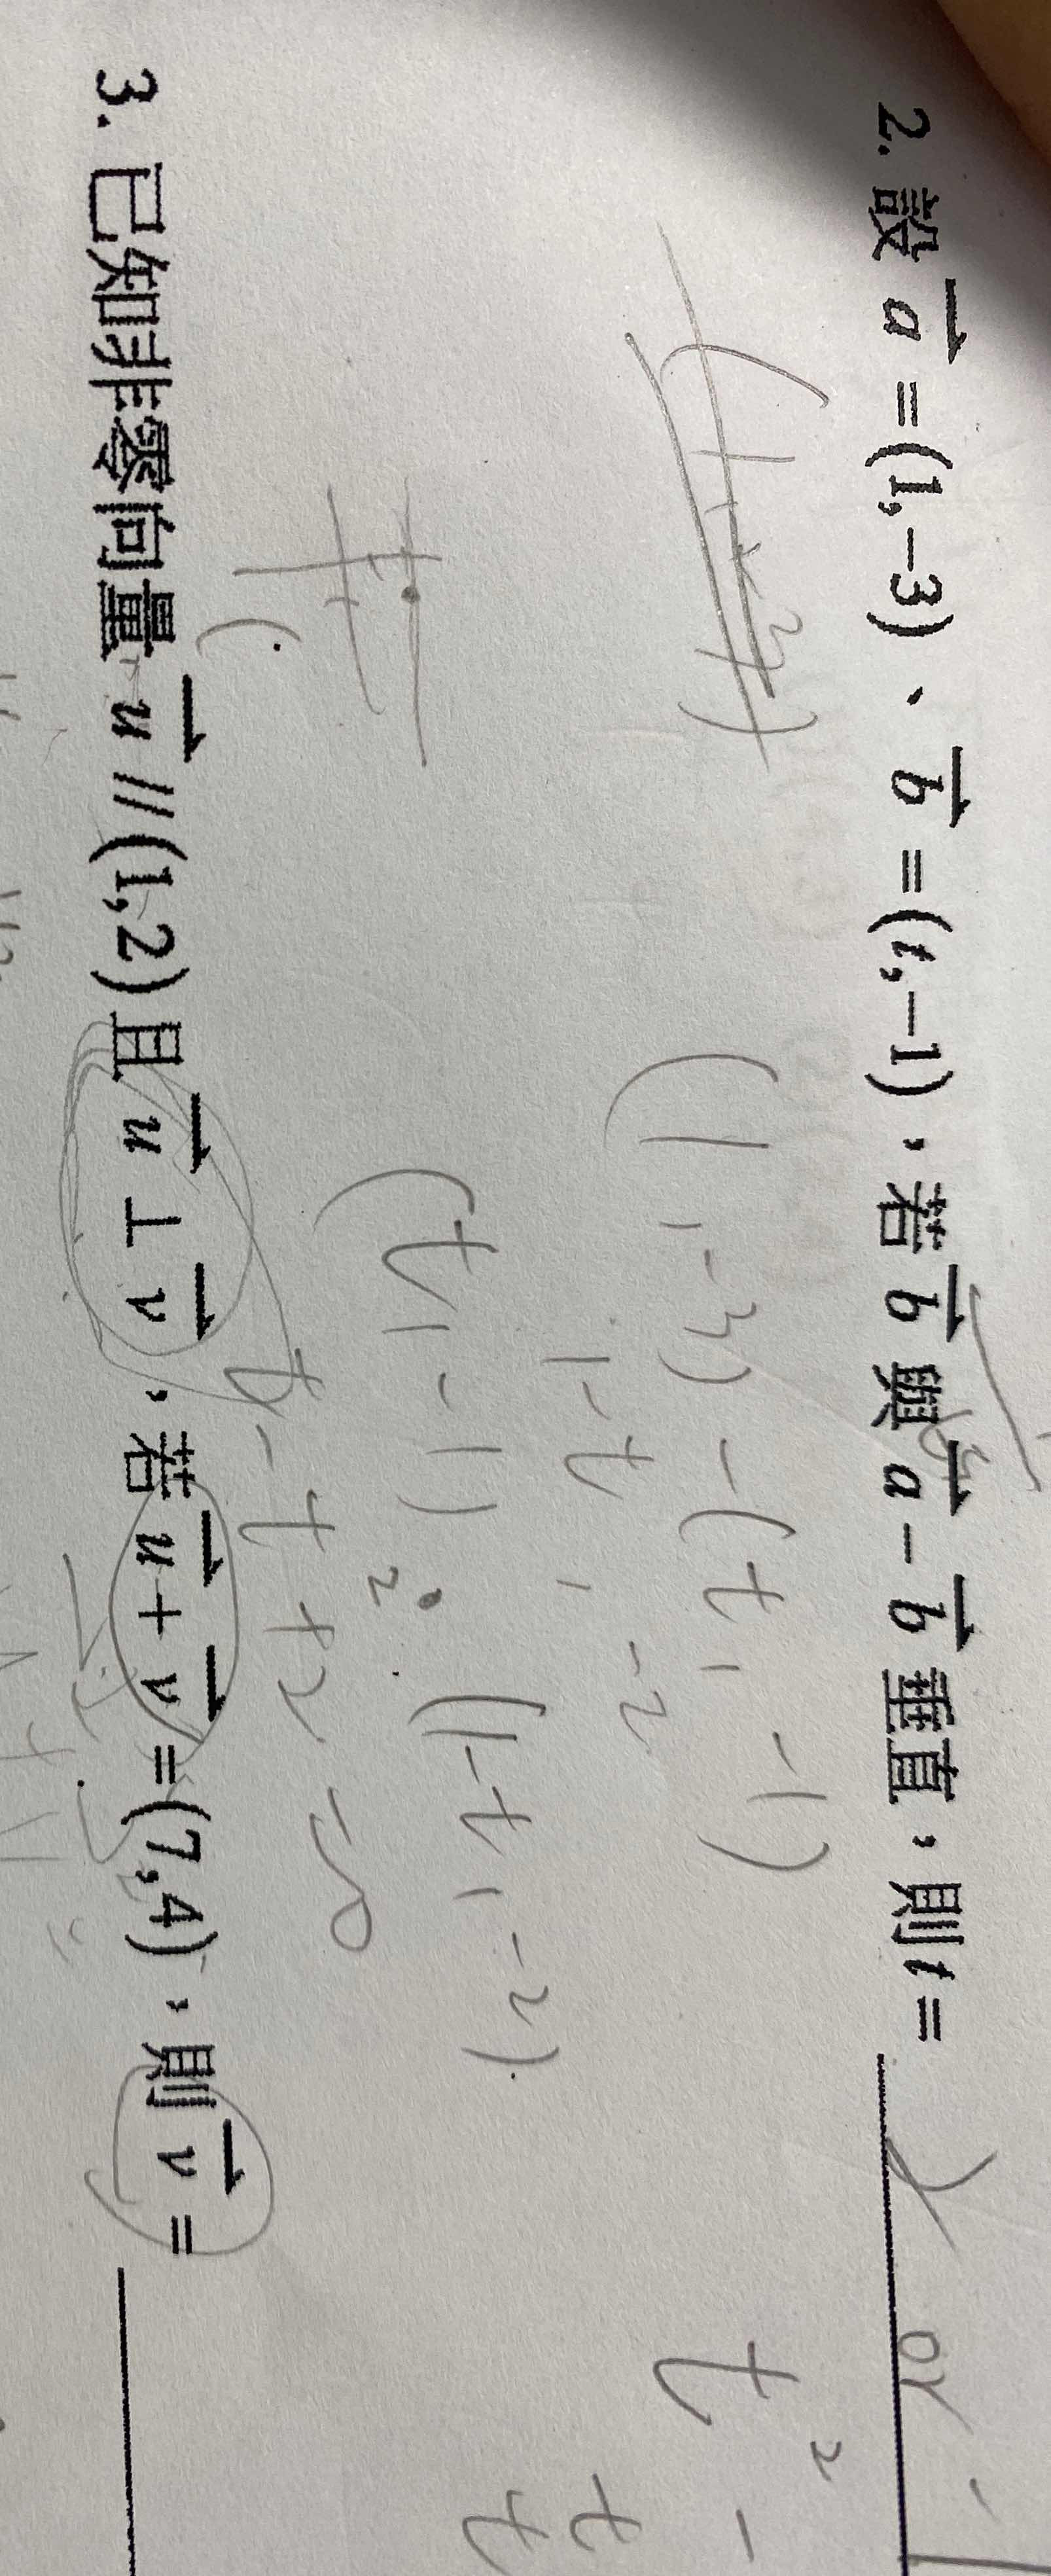 2. 設 a = (1,−3)、b = (t,−1),若 b 與 a − b 垂直,則 t =
2 or −1
(1,−3) − (t,−1)
1−t, −2
(t,−1) · (1−t,−2)
t − t² + 2 = 0
t² −
t
t
3. 已知非零向量 u // (1,2) 且 u ⊥ v,若 u + v = (7,4),則 v =